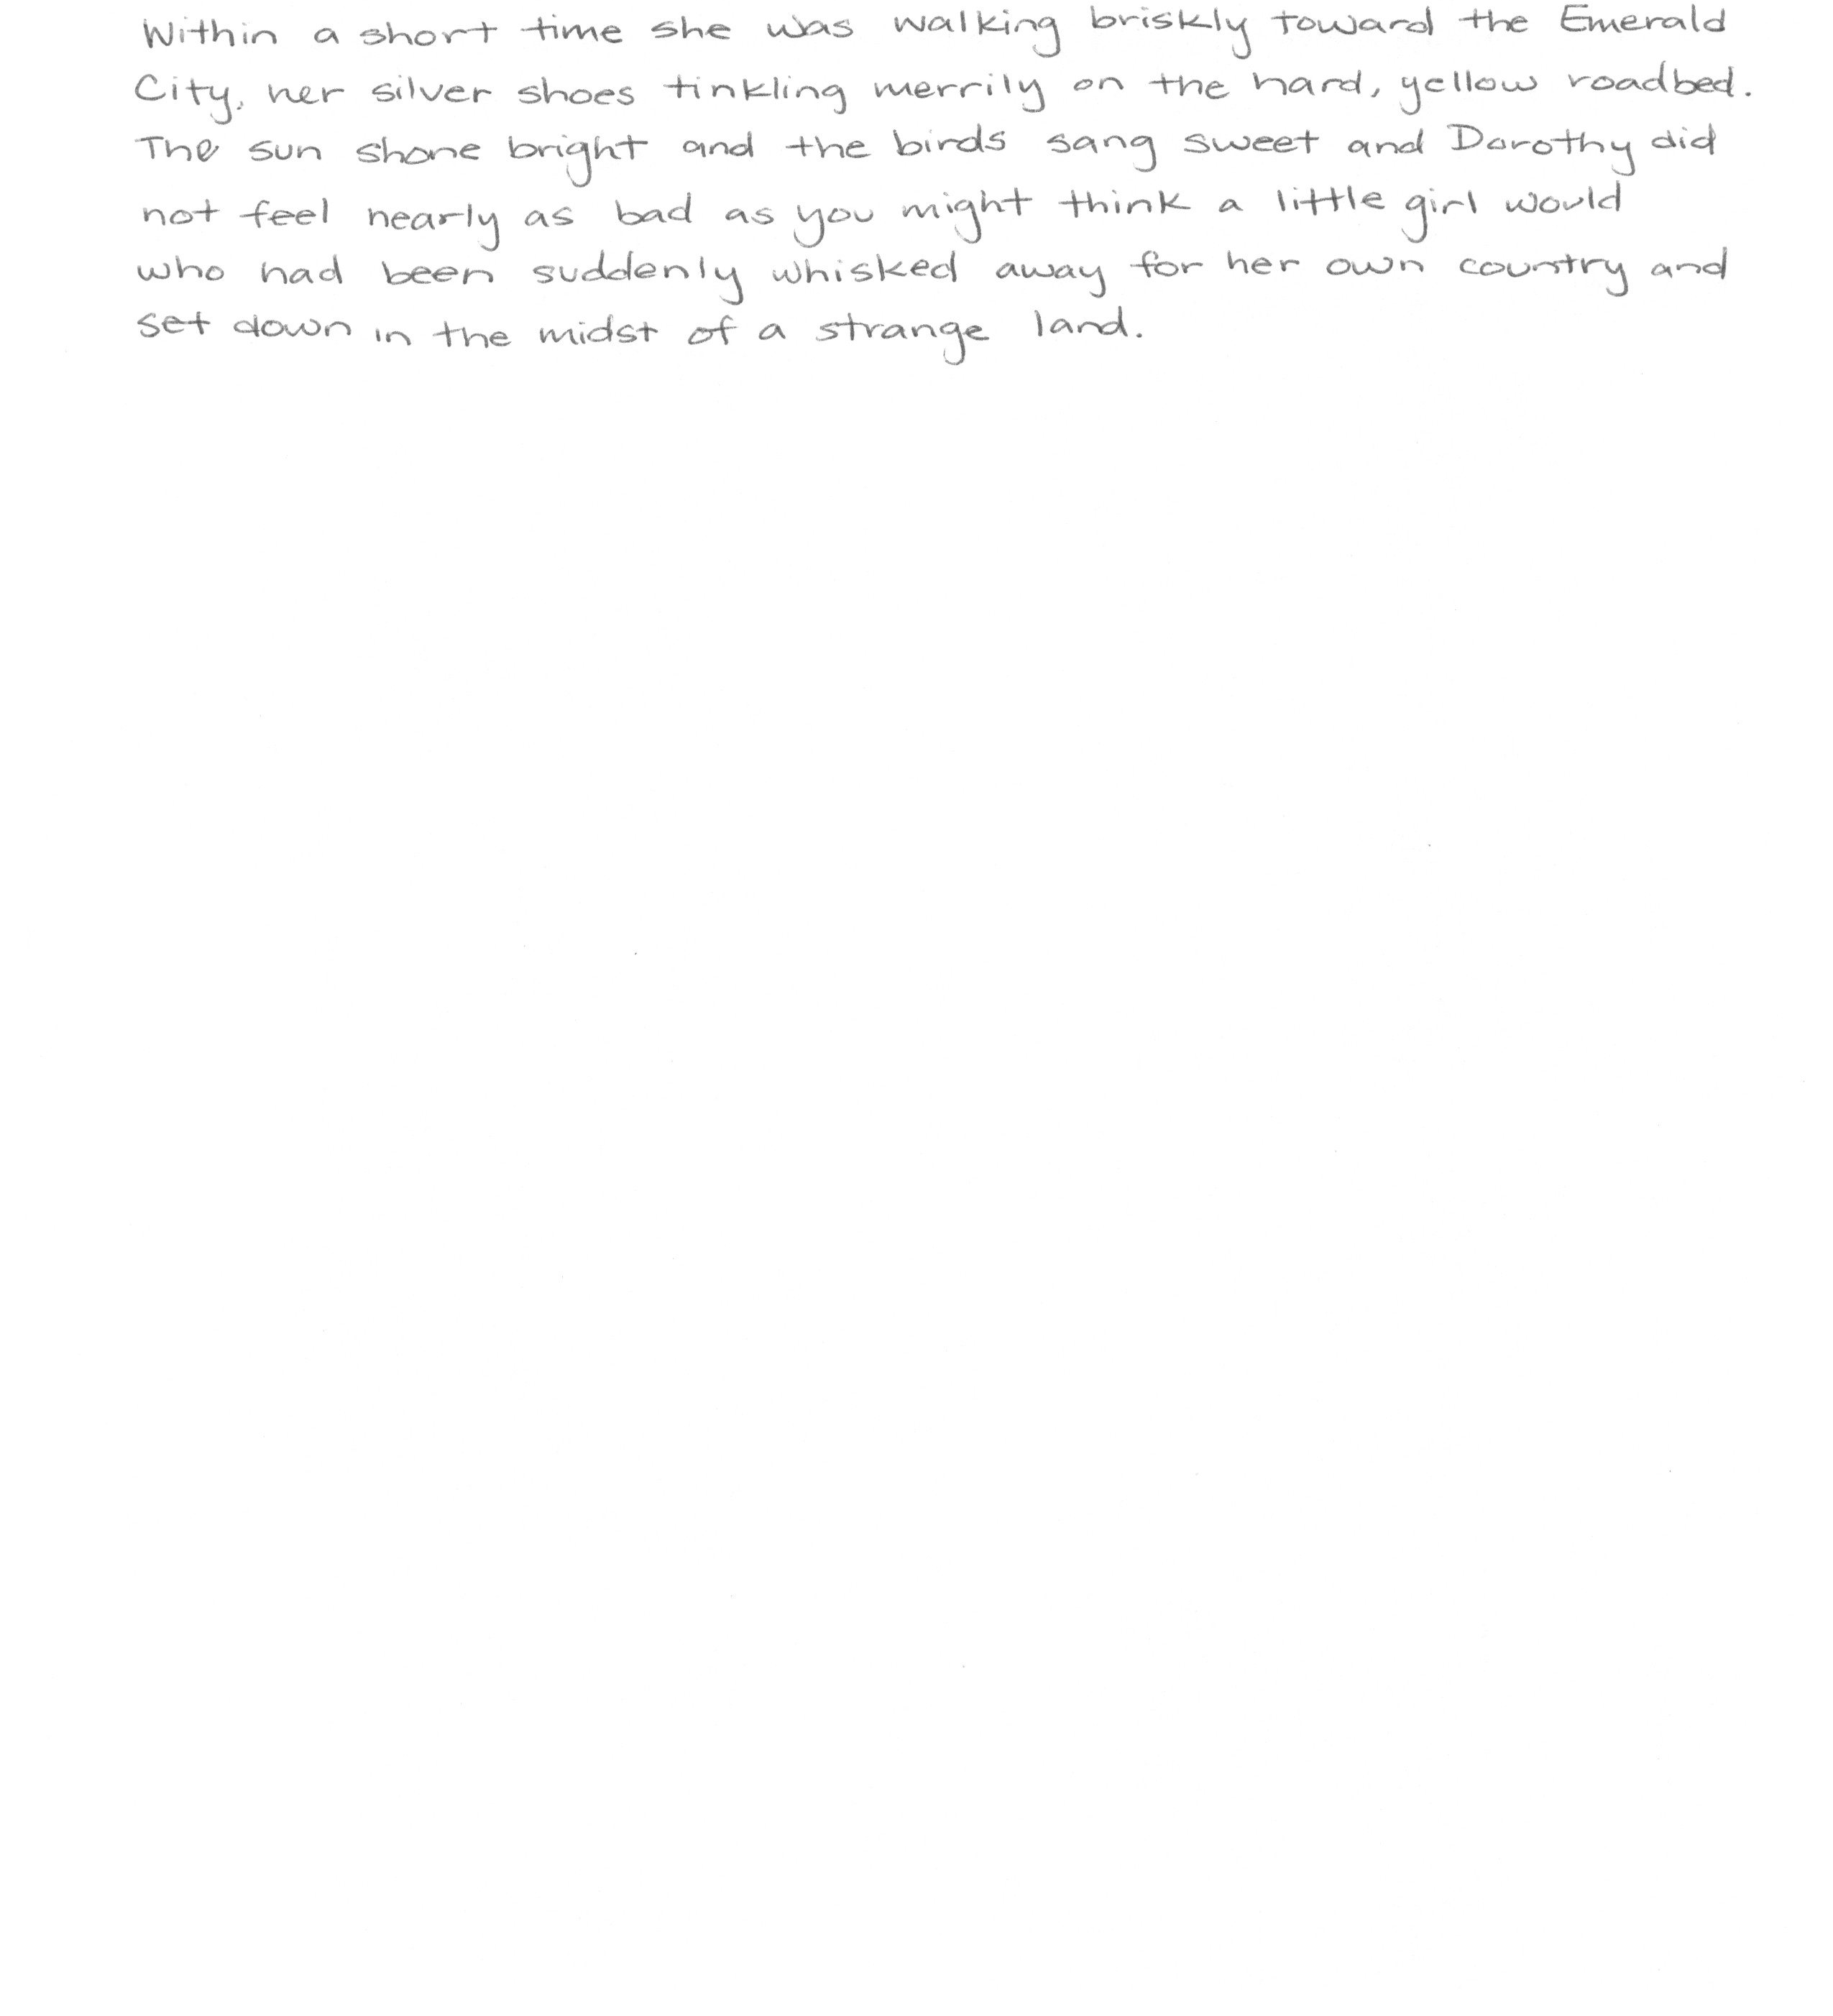 Within a short time she was walking briskly toward the Emerald
City, her silver shoes tinkling merrily on the hard, yellow roadbed.
The sun shone bright and the birds sang sweet and Dorothy did
not feel nearly as bad as you might think a little girl would
who had been suddenly whisked away for her own country and
set down in the midst of a strange land.